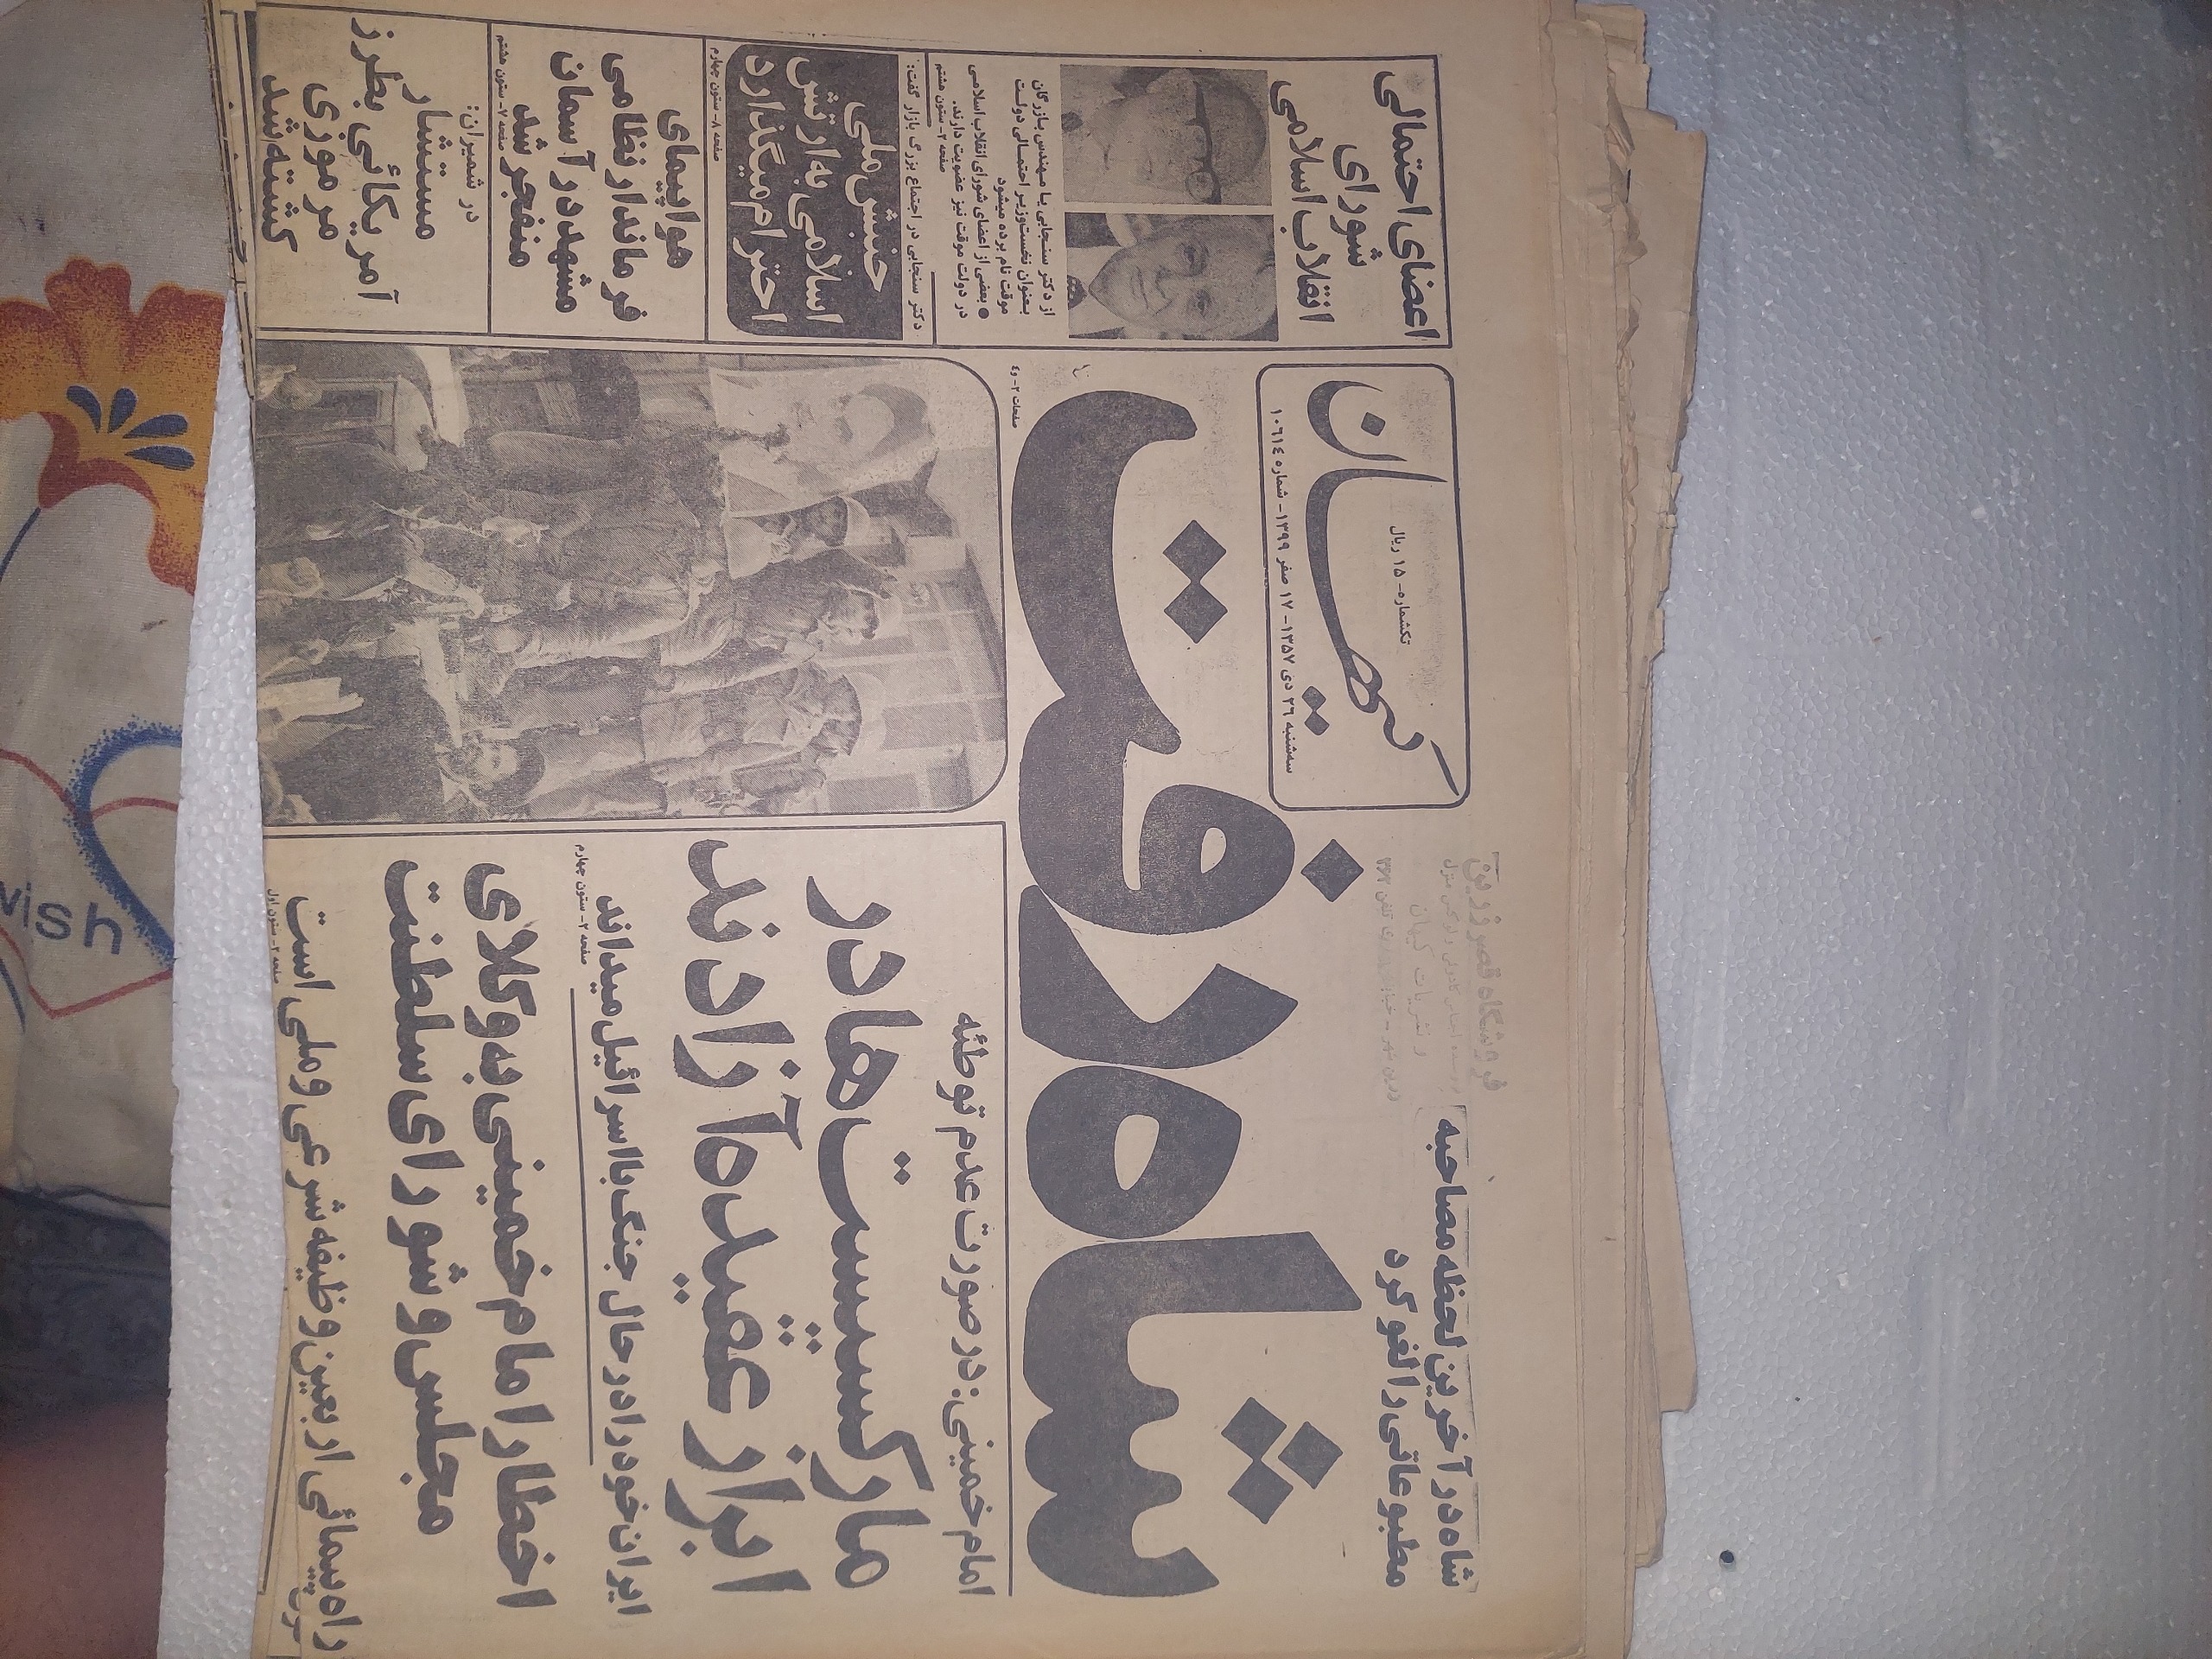 شاه در آخرین لحظه مصاحبه
مطبوعاتی را لغو کرد
فروشگاه قصر زرین
کیهان
تکشماره- ۱۵ ریال
سه‌شنبه ۲۶ دی ۱۳۵۷- ۱۷ صفر ۱۳۹۹- شماره ۱۰۶۱۴
شاه رفت
صفحات ۲- و ٤
امام خمینی: در صورت عدم توطئه
مارکسیست‌ها در
ابراز عقیده آزادند
ایران خود را در حال جنگ با اسرائیل میداند
صفحه ۲- ستون چهارم
اخطار امام خمینی به وکلای
مجلس و شورای سلطنت
راه پیمائی اربعین وظیفه شرعی و ملی است
صفحه ۲- ستون اول
اعضای احتمالی
شورای
انقلاب اسلامی
از دکتر سنجابی یا مهندس بازرگان
بعنوان نخست‌وزیر احتمالی دولت
موقت نام برده میشود
● بعضی از اعضای شورای انقلاب اسلامی
در دولت موقت نیز عضویت دارند.
صفحه ۲- ستون هشتم
دکتر سنجابی در اجتماع بزرگ بازار گفت:
جنبش ملی
اسلامی به ارتش
احترام میگذارد
صفحه ۸- ستون چهارم
هواپیمای
فرماندار نظامی
مشهد در آسمان
منفجر شد
صفحه ۷- ستون هشتم
در شمیران:
مستشار
آمریکائی بطرز
مرموزی
کشته شد